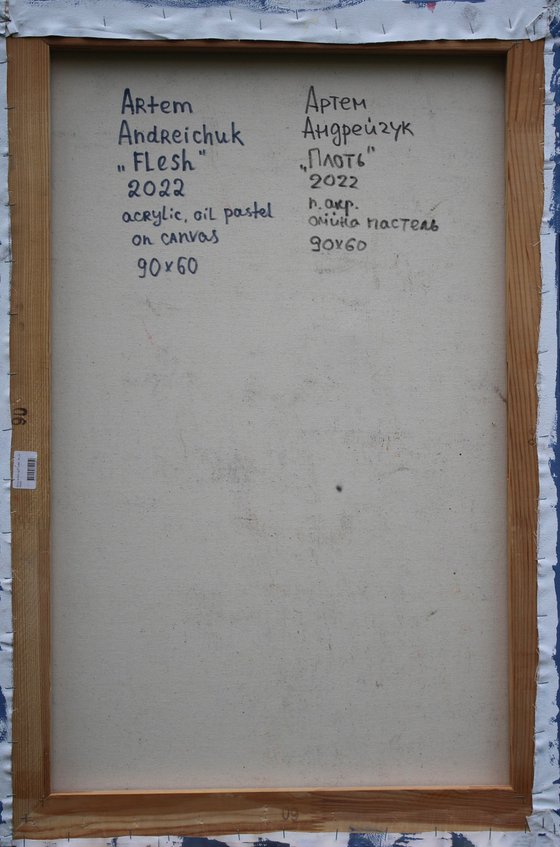 Artem
Andreichuk
„Flesh"
2022
acrylic, oil pastel
on canvas
90x60
Артем
Андрейчук
„Плоть"
2022
п. акр.
олійна пастель
90x60
90
60